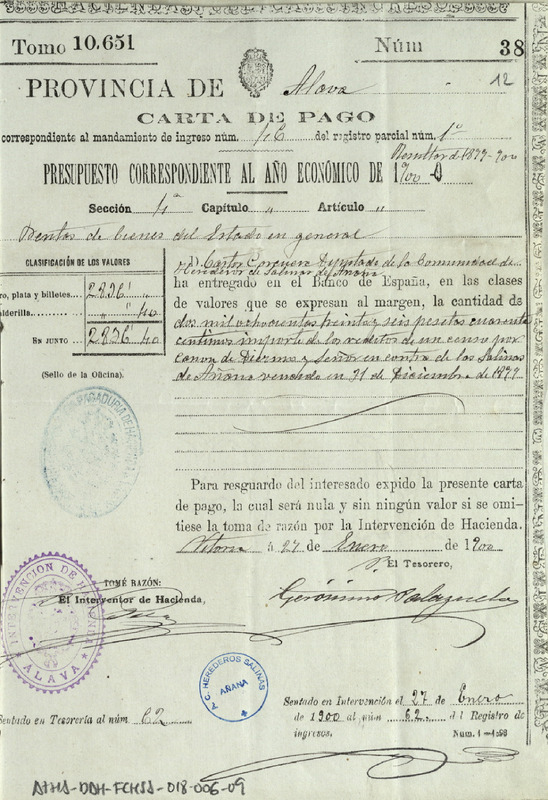 Tomo 10.651 Núm 38
12
PROVINCIA DE Alava
CARTA DE PAGO
correspondiente al mandamiento de ingreso núm. 16 del registro parcial núm. 1º
Resultas de 1899-900
PRESUPUESTO CORRESPONDIENTE AL AÑO ECONÓMICO DE 1900
Sección 4ª Capítulo „ Artículo „
Rentas de bienes del Estado en general
CLASIFICACIÓN DE LOS VALORES
ro, plata y billetes. 2836 „
alderilla. „ 40
EN JUNTO 2836 40
(Sello de la Oficina).
D. Carlos Corcuera Diputado de la Comunidad de
Herederos de Salinas de Añana
ha entregado en el Banco de España, en las clases
de valores que se expresan al margen, la cantidad de
dos mil ochocientas treinta y seis pesetas cuarenta
centimos importe de los reditos de un censo por
canon de Diezmo y Señor en contra de las Salinas
de Añana vencido en 31 de Diciembre de 1899
Para resguardo del interesado expido la presente carta
de pago, la cual será nula y sin ningún valor si se omi-
tiese la toma de razón por la Intervención de Hacienda.
Vitoria á 27 de Enero de 1900
P. El Tesorero,
Gerónimo Palazuelos
TOMÉ RAZÓN:
El Interventor de Hacienda,
INTERVENCION DE HACIENDA
ALAVA
P. C. HEREDEROS SALINAS
AÑANA
Sentado en Tesorería al núm. 62
Sentado en Intervención el 27 de Enero
de 1900 al núm 62 del Registro de
ingresos. Núm. 1-1898
ATHA-DAH-FCHSA-018-006-09